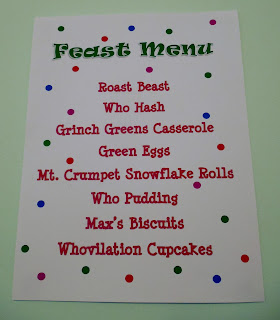 Feast Menu
Roast Beast
Who Hash
Grinch Greens Casserole
Green Eggs
Mt. Crumpet Snowflake Rolls
Who Pudding
Max's Biscuits
Whovilation Cupcakes